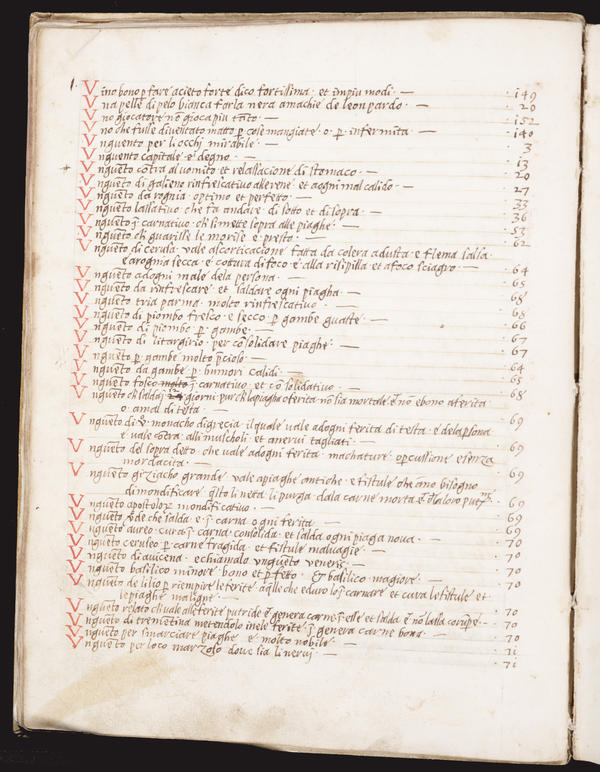 Vino bono p fare acieto forte dico fortissima · et impiu modi · — · 149
Vna pelle di pelo bianca farla nera amachie de leonpardo · — · 20
Vno giocatore nō gioca piu tāto — · 152
Vno che fusse diventato matto p cose mangiate · o · p · infermita — · 140
Vnguento per li occhj mirabile · — · 3
Vnguento capitale e degno · — · 13
Vnguēto cōtra al uomito et relassacione di stomaco · — · 20
Vnguēto di galieno rinfrescativo alle rene · et a ogni mal calido · — · 27
Vnguēto da rognia optimo et perfetto · — · 33
Vnguēto lassativo che fa andare di sotto et di sopra · — · 36
Vnguēto j carnativo ch si mete sopra alle piaghe · — · 53
Vnguēto ch guarisse le morise e presto · — · 62
Vnguēto di cerusa vale alscorticacione fatta da colera adusta e flema salsa
e a rognia secca · e cottura di foco e alla risipilla et a foco sciagro · — · 64
Vnguēto adogni male dela persona · — · 65
Vnguēto da rinfrescare · et saldare ogni piagha — · 68
Vnguēto tria parma molto rinfrescativo · — · 68
Vnguēto di piombo fresco e secco p gambe guaste · — · 66
Vnguēto di piombo p · gambe · — · 67
Vnguēto di litargirio · per cōsolidare piaghe · — · 67
Vnguēto p · gambe molto pcioso · — · 64
Vnguēto da gambe p · humori calidi · — · 65
Vnguēto fosco molto j · carnativo · et cōsolidativo · — · 68
Vnguēto ch salda j 24 giorni pur ch la piagha o ferita nō sia mortale e nō e bono a ferita
o · a mal di testa · — · 69
Vnguēto di monacho di grecia · il quale vale adogni ferita di testa · e dela psona
e vale cōtra alli muscholi · et a nervi tagliati · — · 69
Vnguēto del sopra detto · che vale adogni ferita · machature o pcussione e senza
mordacita · — · 69
Vnguēto giziacho grande vale a piaghe antiche e fistule che ano bisogno
di mondificare qsto li neta li purga dala carne morta e · 69
Vnguēto apostolor mondificativo · — · 69
Vnguēto vde che salda · e j · carna ogni ferita — · 69
Vnguēto aureo · cura j · carna · consolida · et salda ogni piaga nova · — · 70
Vnguēto ceruleo p · carne fragida · et fistule malvagie · — · 70
Vnguēto di avicena · e chiamalo vnguēto veneris — · 70
Vnguēto basilico minore · bono et pfetto · & basilico magiore · — · 70
Vnguēto de lilio p riempire le ferite a qlle che e duro lo j carnare et cura le fistule et
le piaghe maligne · — · 70
Vnguēto relato ch vale alle ferite putride e genera carne j esse et salda e nō lassa corūpe · — · 70
Vnguēto di tremētina metendolo in ele ferite · j genera carne bona · — · 70
Vnguēto per smarciare piaghe e molto nobile · — · 71
Vnguēto per loco marzoso dove sia li nervi · — · 71